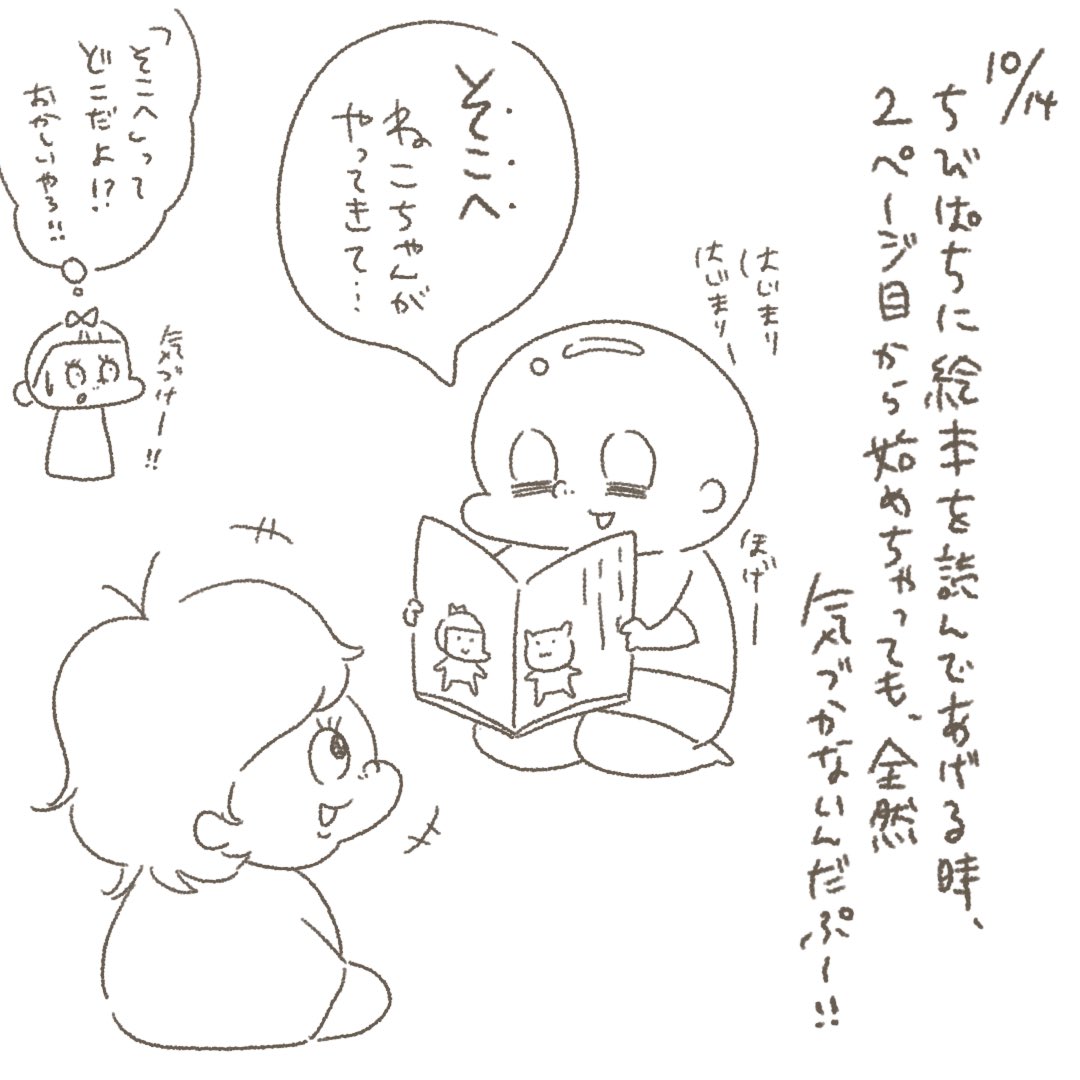 10/14
ちびぱちに絵本を読んであげる時、
2ページ目から始めちゃっても、全然
気づかないんだぷー!!
はじまり
はじまりー
そこへ
ねこちゃんが
やってきて…
ほげー
「そこへ」って
どこだよ!?
おかしいやろ!!
気づけー!!